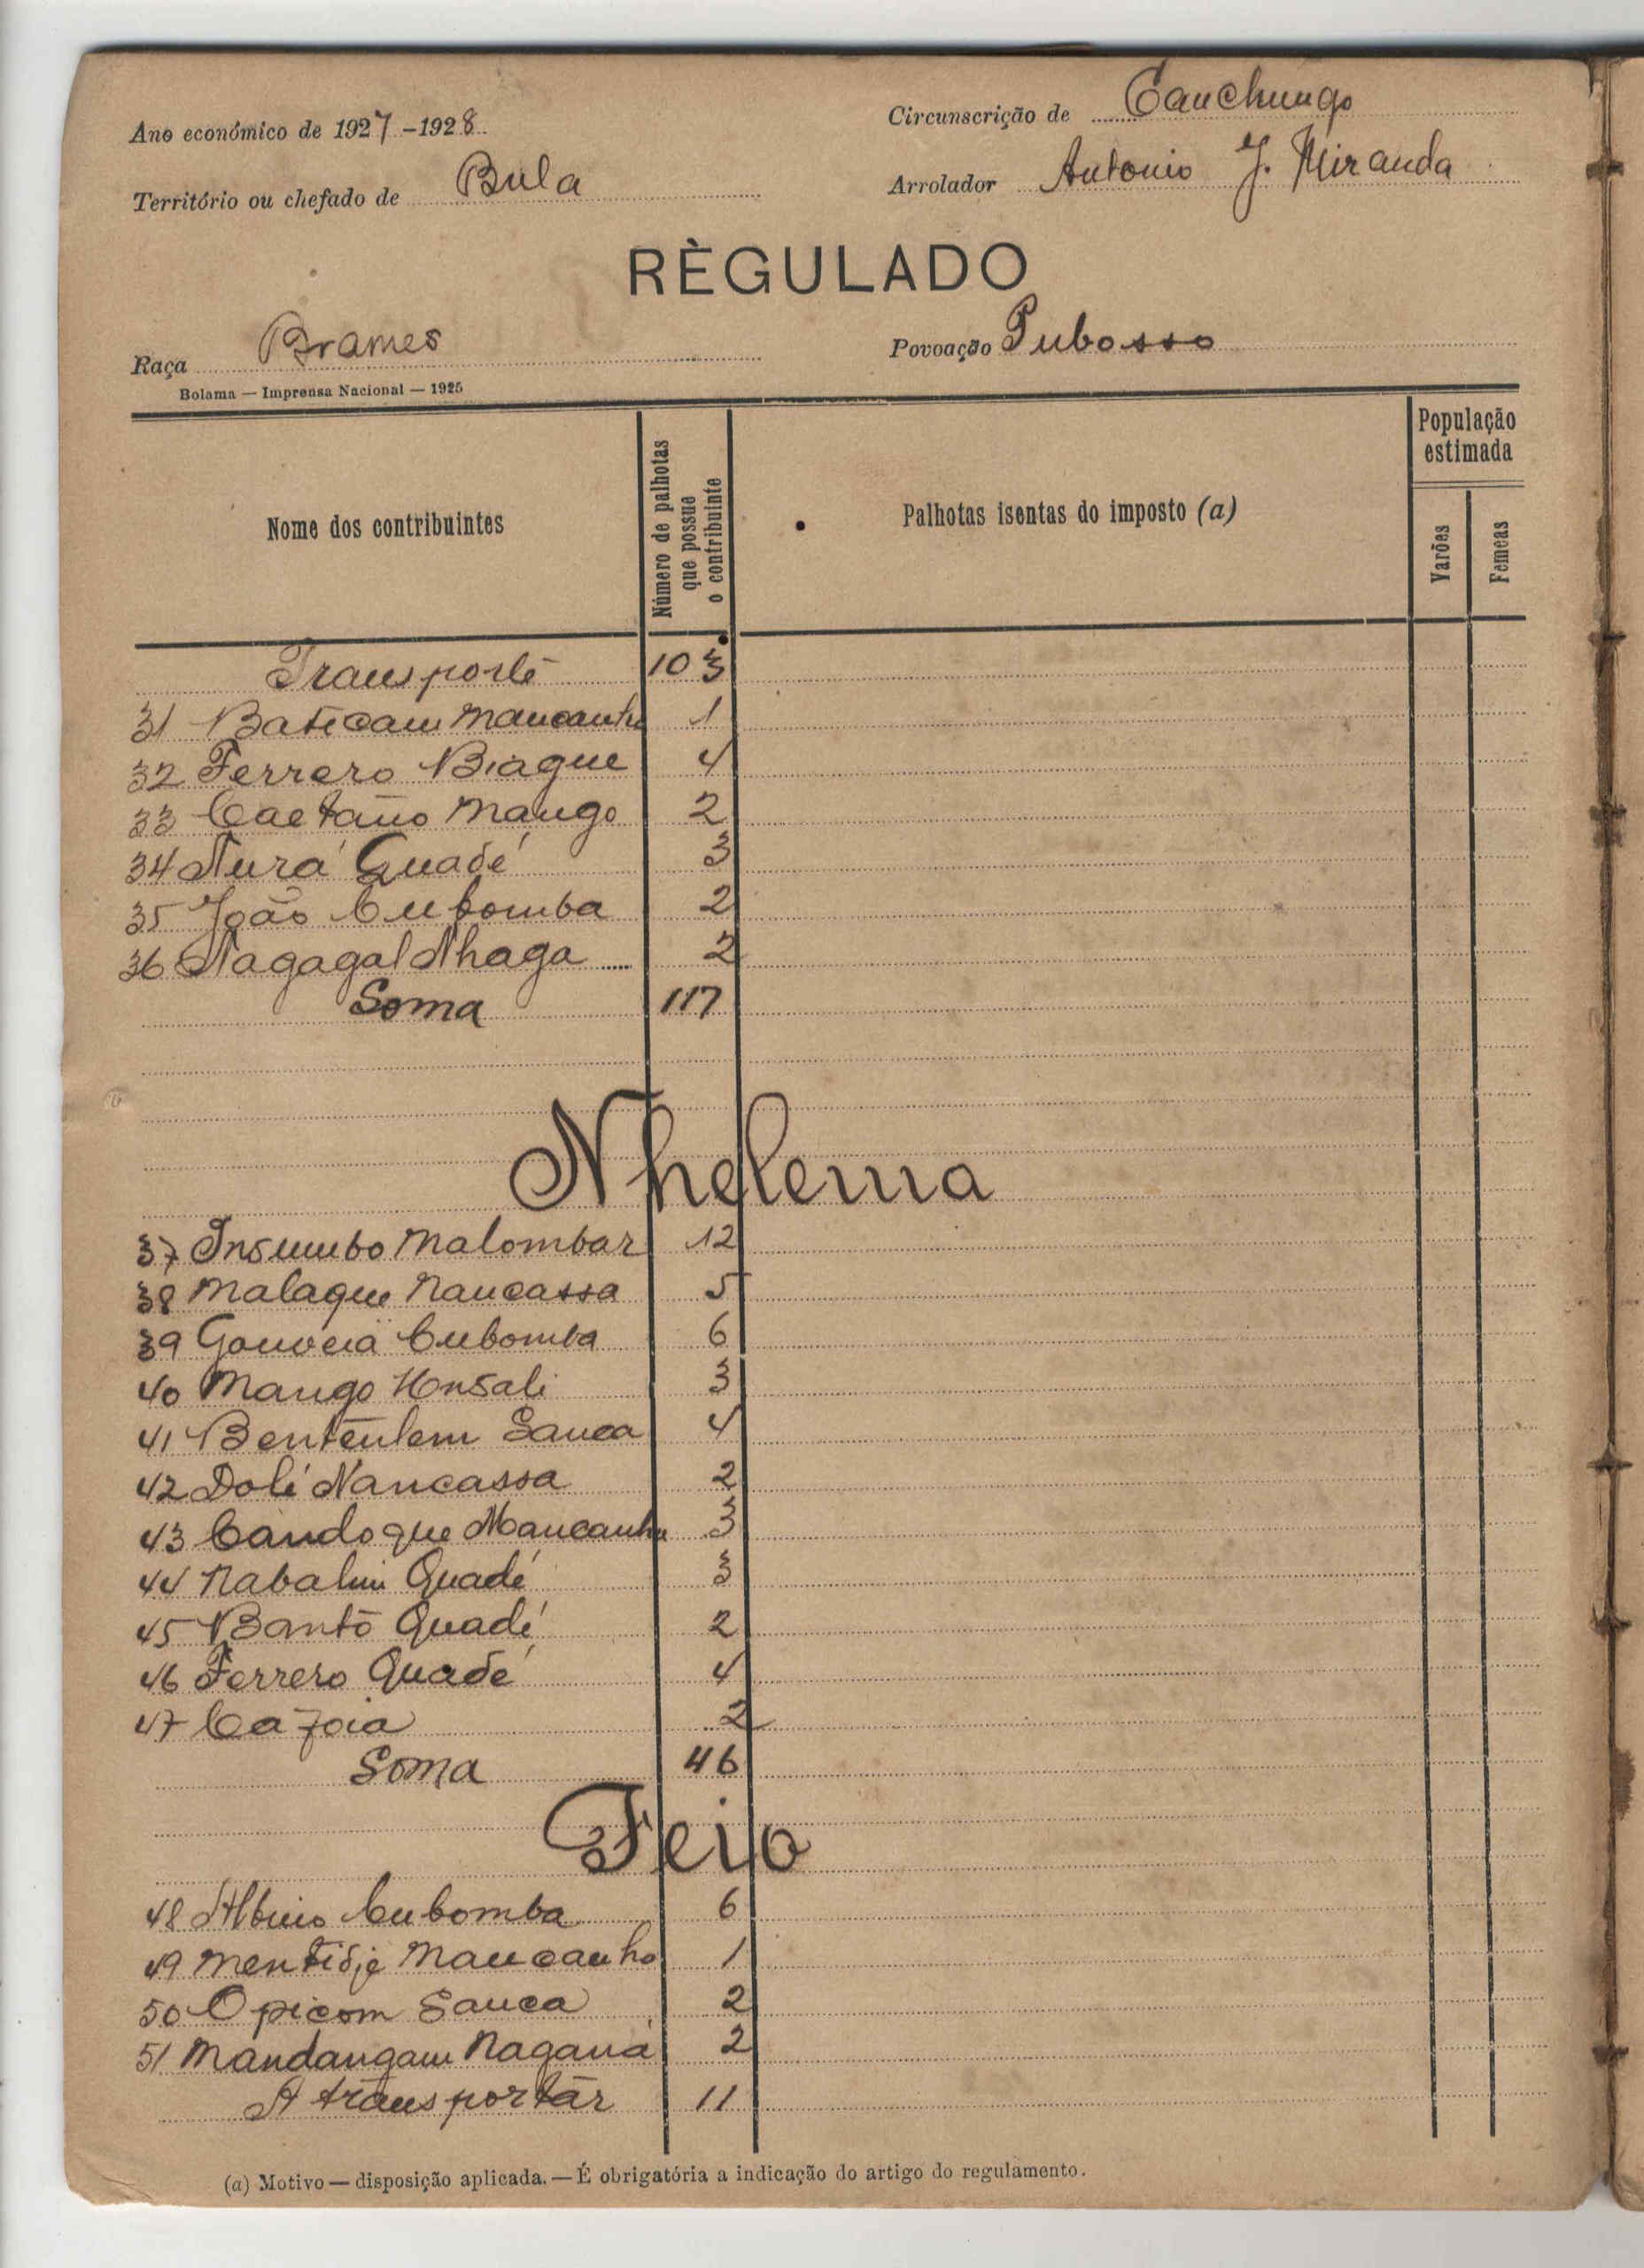 Ano económico de 1927-1928
Circunscrição de Canchungo
Território ou chefado de Bula
Arrolador Antonio J. Miranda
RÈGULADO
Raça Brames
Povoação Pubosso
Bolama — Imprensa Nacional — 1925
Nome dos contribuintes
Número de palhotas que possue o contribuinte
Palhotas isentas do imposto (a)
População estimada
Varões
Femeas
Transporte 103
31 Baticam Mancanha 1
32 Ferrero Biague 4
33 Caetano Mango 2
34 Nurá Quadé 3
35 João Cubomba 2
36 Nagagal Nhaga 2
Soma 117
Nhelema
37 Insumbo Malombar 12
38 Malaque Nancassa 5
39 Gouveia Cubomba 6
40 Mango Honsali 3
41 Bentenlem Sanca 4
42 Doli Nancassa 2
43 Candoque Mancanha 3
44 Nabalim Quadé 3
45 Bantó Quadé 2
46 Ferrero Quadé 4
47 Cafoia 2
Soma 46
Feio
48 Albino Cubomba 6
49 Mentidje Mancanho 1
50 Opicom Sanca 2
51 Mandangam Naganá 2
A transportar 11
(a) Motivo — disposição aplicada. — É obrigatória a indicação do artigo do regulamento.